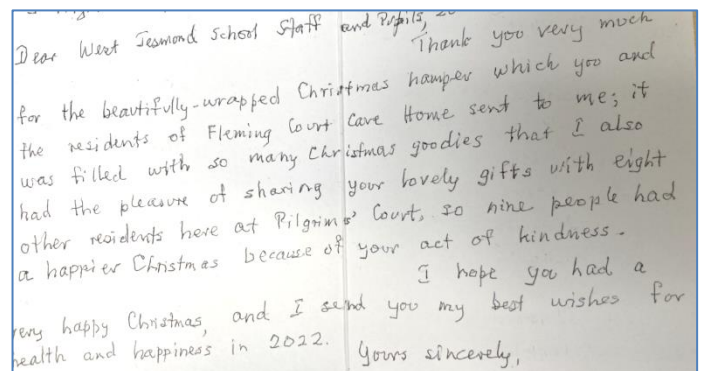 Dear West Jesmond School Staff and Pupils,
Thank you very much
for the beautifully-wrapped Christmas hamper which you and
the residents of Fleming Court Care Home sent to me; it
was filled with so many Christmas goodies that I also
had the pleasure of sharing your lovely gifts with eight
other residents here at Pilgrims' Court, so nine people had
a happier Christmas because of your act of kindness.
I hope you had a
very happy Christmas, and I send you my best wishes for
health and happiness in 2022.
Yours sincerely,